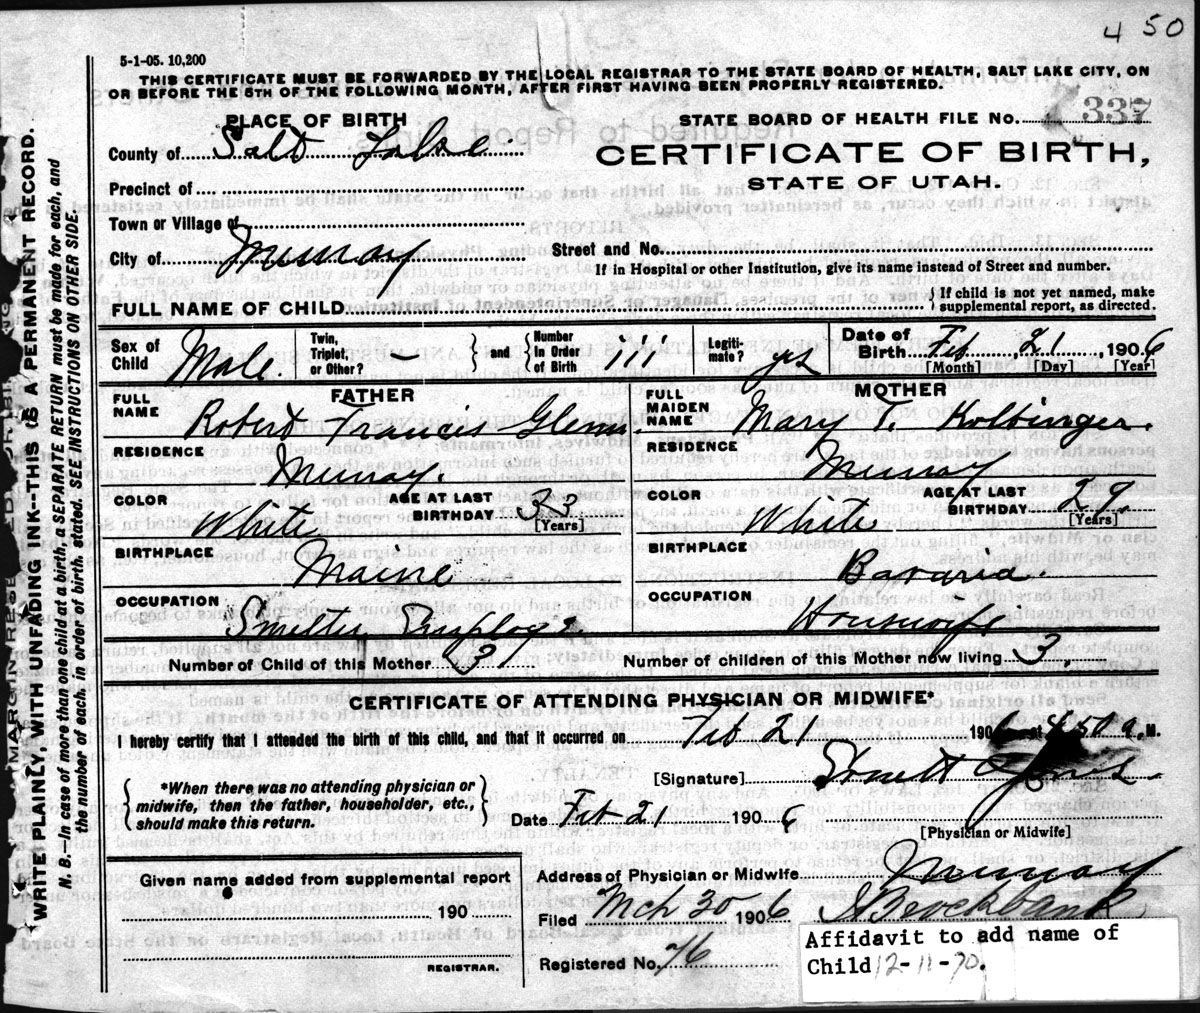 450
5-1-05. 10,200
THIS CERTIFICATE MUST BE FORWARDED BY THE LOCAL REGISTRAR TO THE STATE BOARD OF HEALTH, SALT LAKE CITY, ON
OR BEFORE THE 5TH OF THE FOLLOWING MONTH, AFTER FIRST HAVING BEEN PROPERLY REGISTERED.
WRITE PLAINLY, WITH UNFADING INK--THIS IS A PERMANENT RECORD.
N. B.—In case of more than one child at a birth, a SEPARATE RETURN must be made for each, and
the number of each, in order of birth, stated. SEE INSTRUCTIONS ON OTHER SIDE.
PLACE OF BIRTH
County of Salt Lake
Precinct of
Town or Village of
City of Murray
STATE BOARD OF HEALTH FILE No. 337
CERTIFICATE OF BIRTH,
STATE OF UTAH.
Street and No.
If in Hospital or other Institution, give its name instead of Street and number.
FULL NAME OF CHILD
{ If child is not yet named, make
supplemental report, as directed.
Sex of Child Male. Twin, Triplet, or Other? - } and { Number In Order of Birth iii Legiti- mate? yes Date of Birth Feb, 21, 1906
[Month] [Day] [Year]
FATHER
FULL NAME Robert Francis Glenn
RESIDENCE Murray.
COLOR White AGE AT LAST BIRTHDAY 33
[Years]
BIRTHPLACE Maine
OCCUPATION Smelter
MOTHER
FULL MAIDEN NAME Mary T. Kolbinger.
RESIDENCE Murray
COLOR White AGE AT LAST BIRTHDAY 29.
[Years]
BIRTHPLACE Bavaria.
OCCUPATION Housewife
Number of Child of this Mother 3 Number of children of this Mother now living 3.
CERTIFICATE OF ATTENDING PHYSICIAN OR MIDWIFE*
I hereby certify that I attended the birth of this child, and that it occurred on Feb 21 1906 at 4.50 a. M.
{ *When there was no attending physician or
midwife, then the father, householder, etc.,
should make this return. }
[Signature]
Date Feb 21 1906
[Physician or Midwife]
Given name added from supplemental report
190
REGISTRAR.
Address of Physician or Midwife Murray
Filed Mch 30 1906 Brockbank
Registered No. 76
Affidavit to add name of
Child 12-11-70.